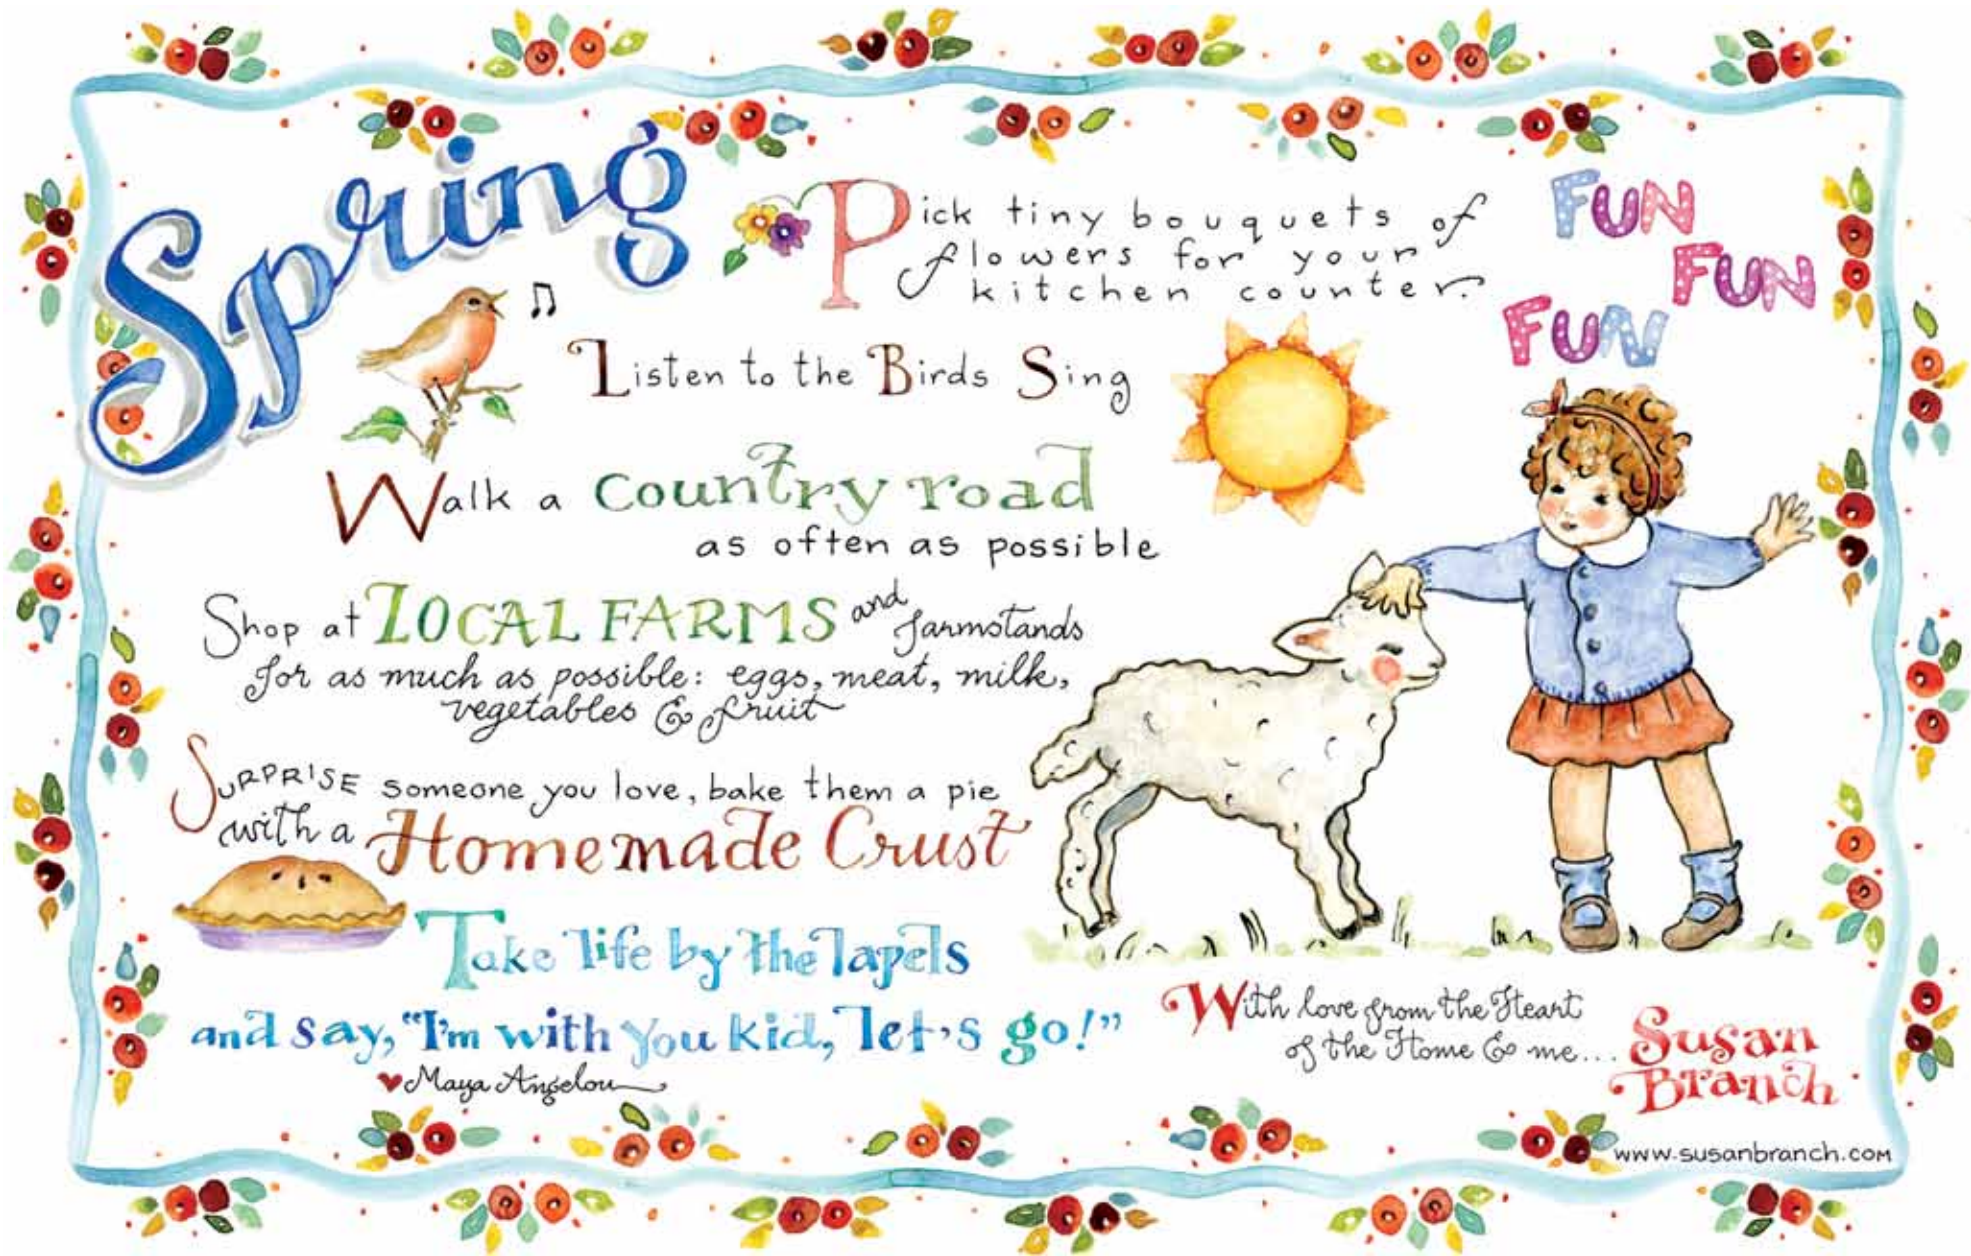 Spring
Pick tiny bouquets of
flowers for your
kitchen counter.
FUN
FUN
FUN
Listen to the Birds Sing
Walk a Country road
as often as possible
Shop at LOCAL FARMS and farmstands
for as much as possible: eggs, meat, milk,
vegetables & fruit
SURPRISE someone you love, bake them a pie
with a Homemade Crust
Take life by the lapels
and say, “I'm with you kid, let's go!”
♥Maya Angelou
With love from the Heart
of the Home & me...
Susan
Branch
www.susanbranch.com